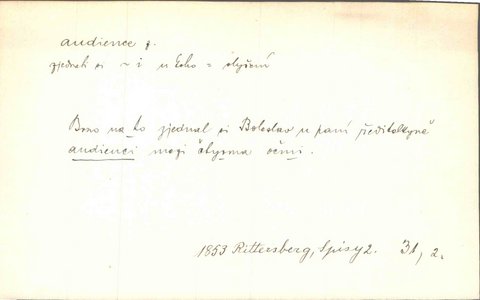 audience ž.
zjednati si ~ i u koho = slyšení
Brzo na to zjednal si Boleslav u paní ředitelkyně
audienci mezi čtyřma očmi.
1853 Rittersberg, Spisy 2. 31, 2.